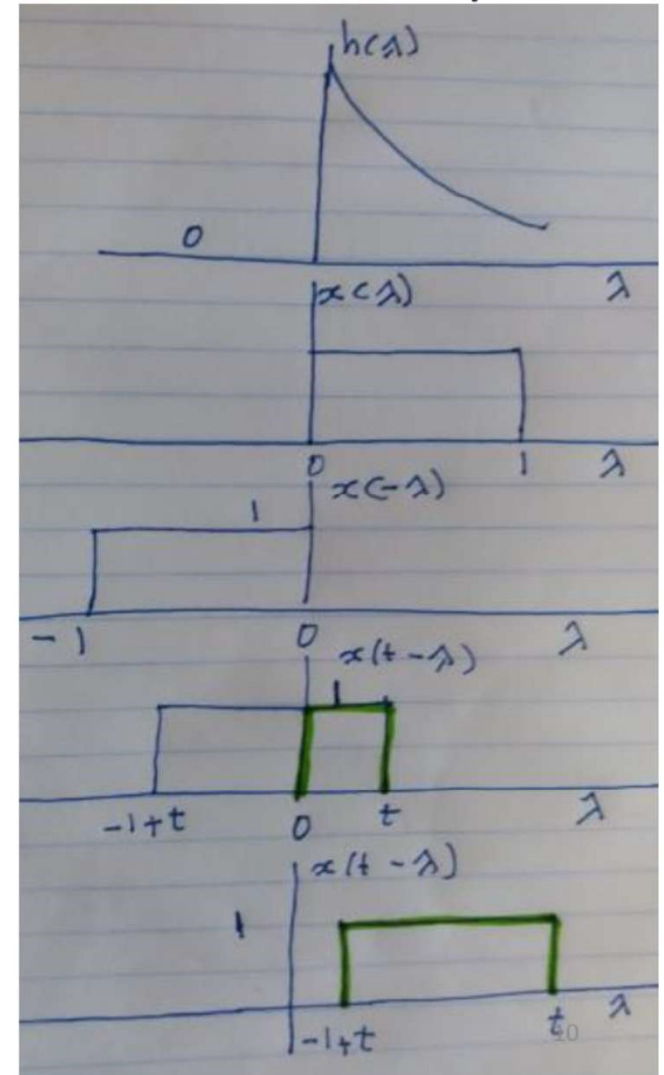 h(λ)
0
λ
x(λ)
0 1 λ
x(-λ)
1
-1 0 λ
x(t-λ)
1
-1+t 0 t λ
x(t-λ)
1
-1+t t λ